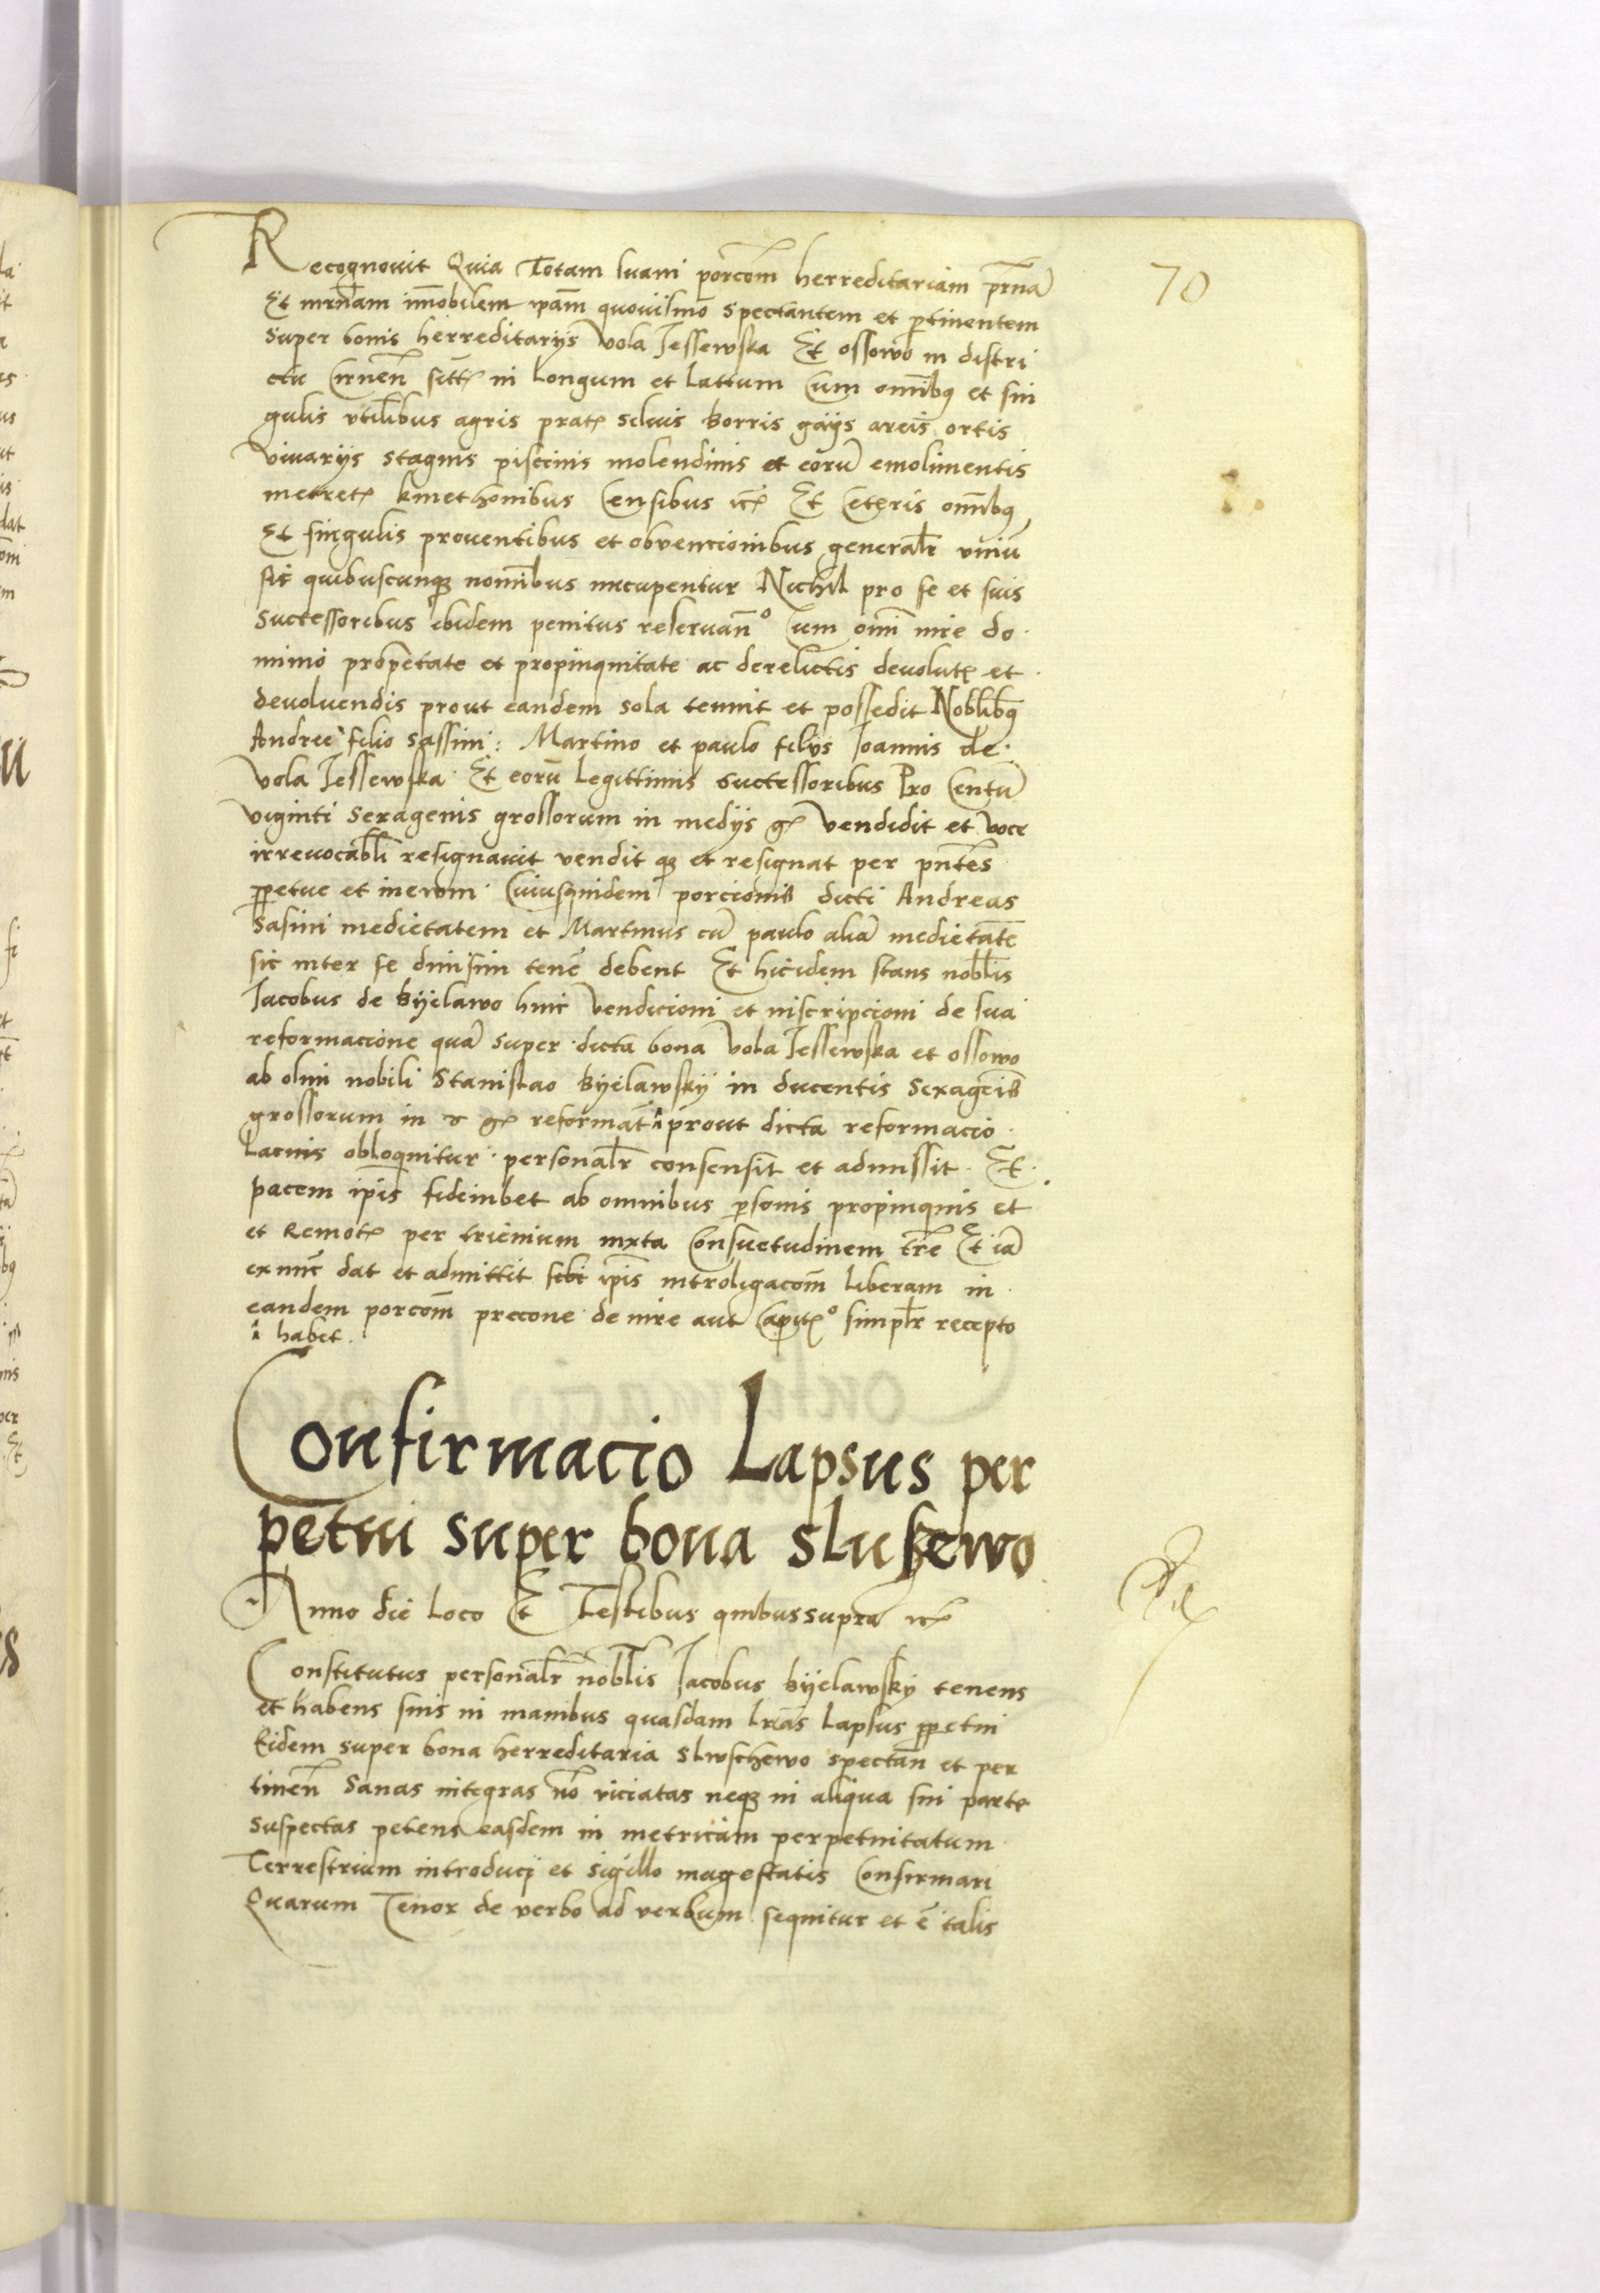 70
Recognovit Quia Totam suam porcōm herreditariam pr̄nā
Et mr̄nam im̄obilem ip̄am quovismō spectantem et ꝑtinentem
super bonis herreditariis Vola Jessewska Et ossowo in distri
ctu Cirneñ sitt in Longum et Lattum Cum om̄ibꝫ et sin
gulis vtilibus agris prat silvis borris gays areis ortis
vivariis stagnis piscinis molendinis et eorū emolimentis
metret kmethonibus Censibus etc Et Ceteris om̄ibꝫ
Et singulis proventibus et obvencionibus generalr̄ vniū
sit quibuscunqꝫ nomībus nūcupentur Nichil pro se et suis
Successoribus ibidem penitus reservañº Cum om̄i iure do
minio propr̄etate et propinquitate ac derelictis devolut et
devoluendis prout eandem sola tenuit et possedit Nobl̄ibꝫ
Andree filio Sassini: Martino et paulo filiis Joannis de
Vola Jessewska Et eorū Legittimis successoribus Pro Centū
viginti sexagenis grossorum in mediis ḡ vendidit et voce
irrevocabl̄i resignavit vendit qꝫ et resignat per pn̄tes
ꝑpetue et inevom Cuiusquidem porcionis dicti Andreas
Sasini medietatem et Martinus cū paulo aliā medietatē
sic inter se divisim tenē debent Et hic idem stans nobl̄is
Jacobus de Byelawo huic vendicioni et inscripcioni de sua
reformacione quā super dicta bona Vola Jessewska et ossowo
ab olim nobili Stanislao Byelawsky in ducentis sexagēis
grossorum in ḡ reformat ꜛ prout dicta reformacio
Lacius obloquitur personalr̄ consensit et admissit Et
pacem ip̄is fideiubet ab omnibus ꝑsonis propinquis et
et Remot per trienium iuxta Consuetudinem tr̄re Et iā
ex nūc dat et admittit sibi ip̄is introligacōm liberam in
eandem porcōm precone de iure aut Capitº simplr̄ recepto
ꜛ habet
Confirmacio Lapsus per
petui super bona slusewo
Anno die Loco Et Testibus quibussupra etc
Constitutus personalr̄ nobl̄is Jacobus Byelawsky tenens
et habens suis in manibus quasdam Lr̄as Lapsus ꝑpetui
Eidem super bona herreditaria slwschewo spectañ et per
tineñ Sanas integras nō viciatas neqꝫ in aliqua sui parte
suspectas petens easdem in metricam perpetuitatum
Terrestrium introducy et sigillo magestatis Confirmari
Quarum Tenor de verbo ad verbum sequitur et ē talis